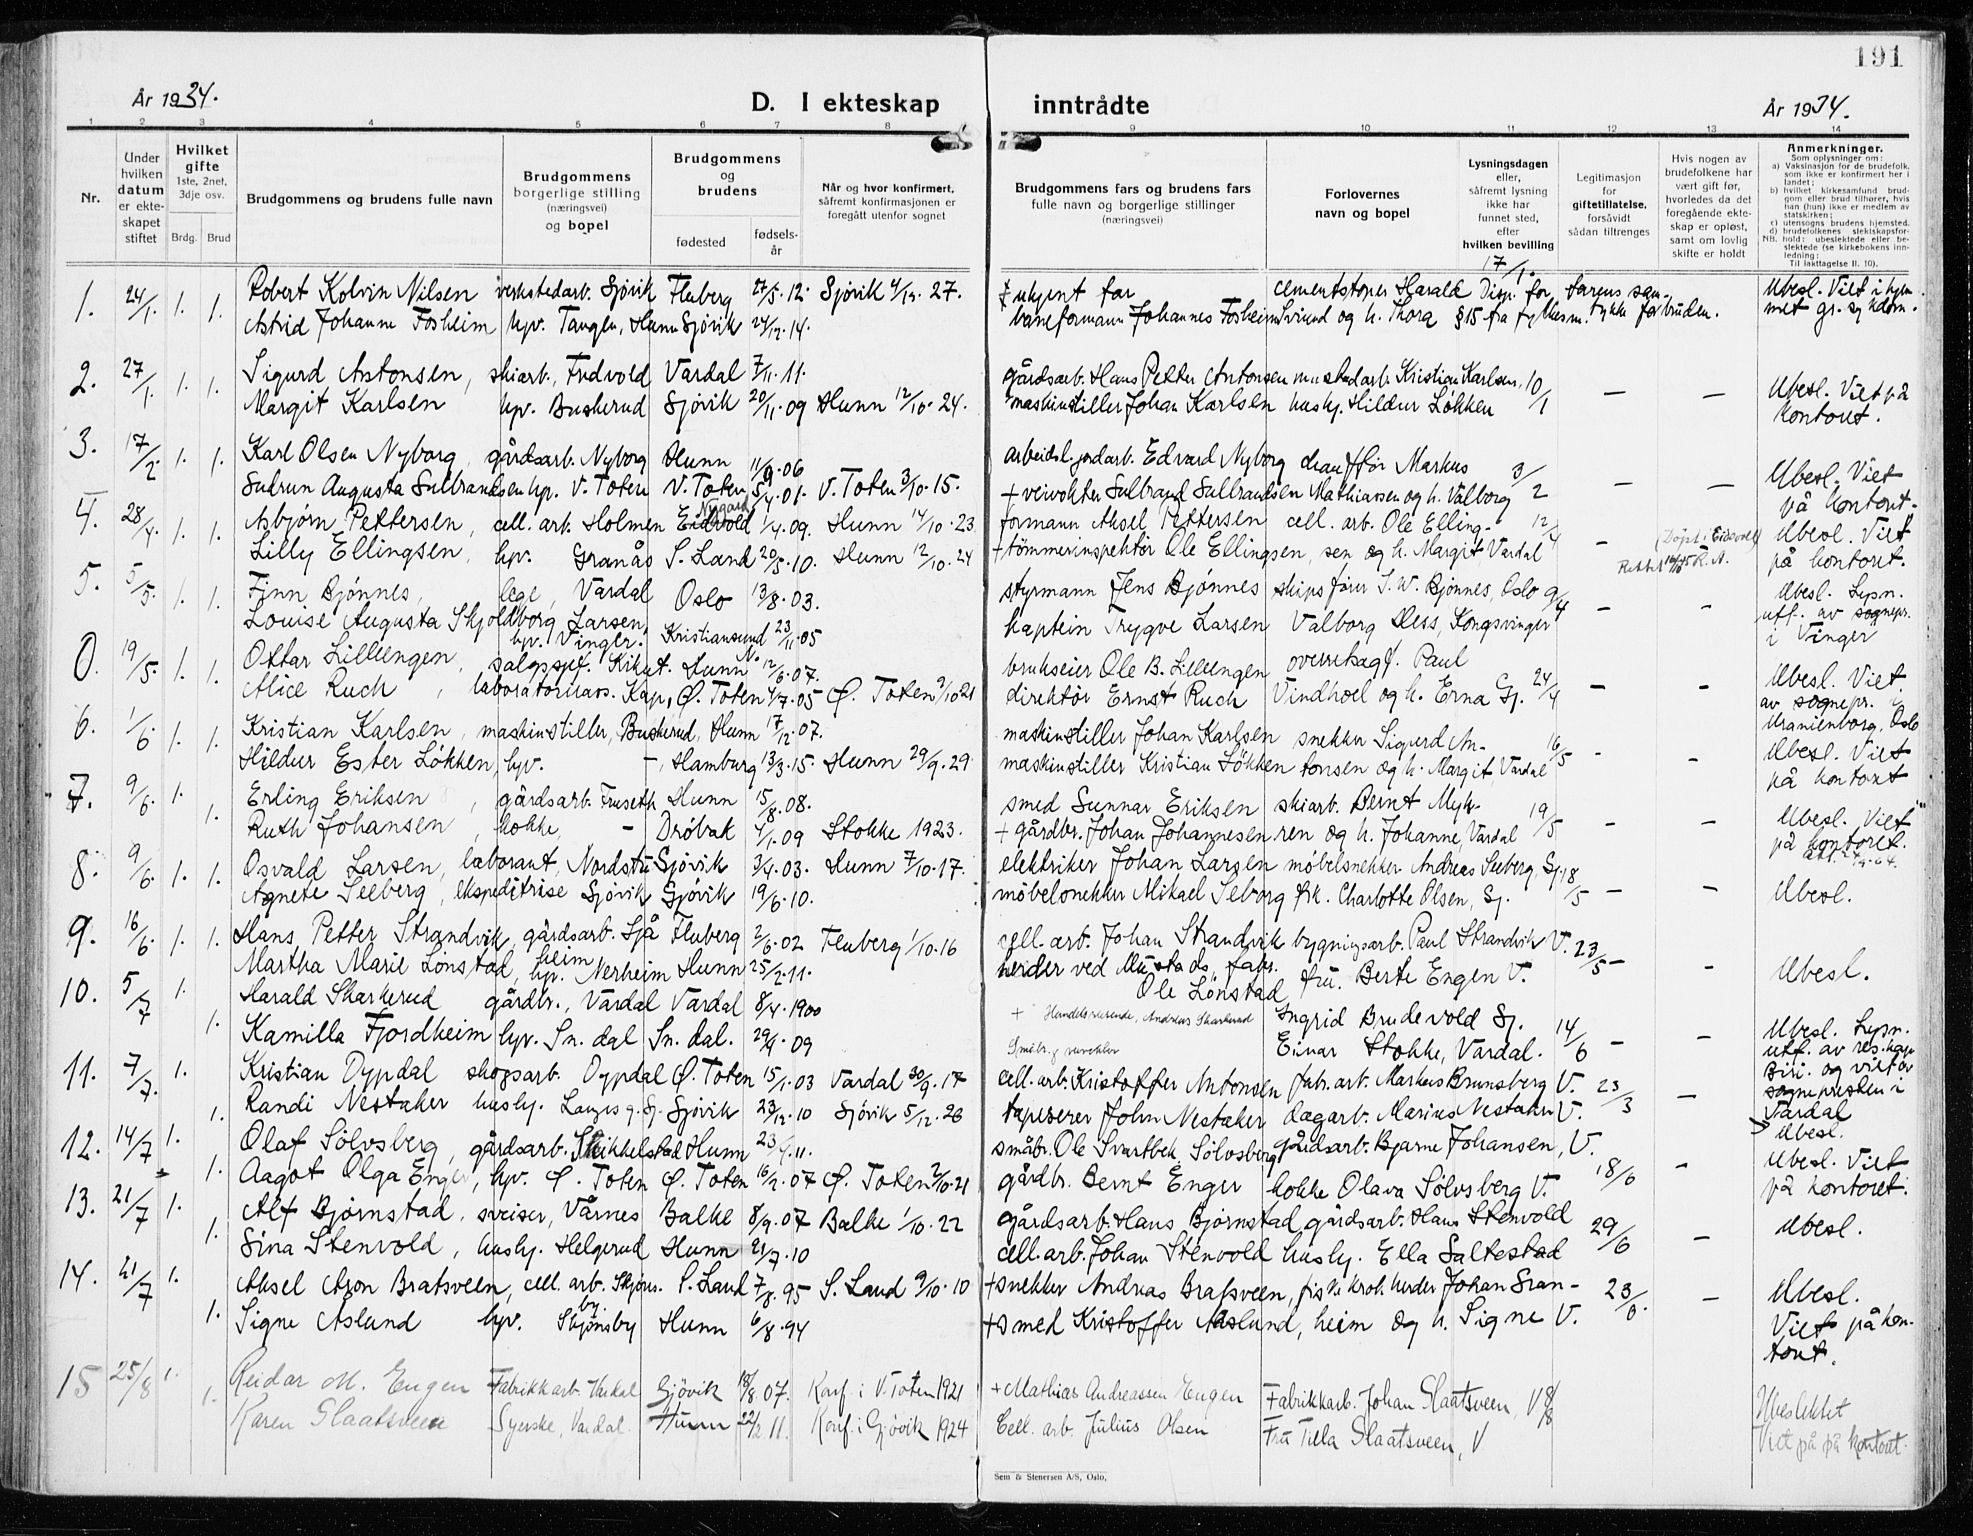 191
År 1934.
D. I ekteskap inntrådte
År 1934.
1 2 3 4 5 6 7 8 9 10 11 12 13 14
Nr.
Under hvilken datum er ekteskapet stiftet
Hvilket gifte 1ste, 2net, 3dje osv.
Brdg. Brud
Brudgommens og brudens fulle navn
Brudgommens borgerlige stilling (næringsvei) og bopel
Brudgommens og brudens
fødested
fødselsår
Når og hvor konfirmert, såfremt konfirmasjonen er foregått utenfor sognet
Brudgommens fars og brudens fars fulle navn og borgerlige stillinger (næringsvei)
Forlovernes navn og bopel
Lysningsdagen eller, såfremt lysning ikke har funnet sted, efter hvilken bevilling
Legitimasjon for giftetillatelse, forsåvidt sådan tiltrenges
Hvis nogen av brudefolkene har vært gift før, hvorledes da det foregående ekteskap er opløst, samt om lovlig skifte er holdt
Anmerkninger.
Som oplysninger om:
a) Vaksinasjon for de brudefolk, som ikke er konfirmert her i landet;
b) hvilket kirkesamfund brudgom eller brud tilhører, hvis han (hun) ikke er medlem av statskirken;
c) utensogns brudens hjemsted.
d) brudefolkenes slektskapsforhold: ubeslektede eller beslektede (se kirkebokens innledning:
NB. Til iakttagelse II. 10).
1. 24/1. 1. 1. Robert Kolvin Nilsen verkstedarb. Gjøvik Fluberg 27/5.12. Gjøvik 4/12. 27. ukjent far cementstøper Harald 17/1. Disp. for farens sam- Ubesl. Viet i hjem-
Astrid Johanne Fosheim hv. Tangen, Hunn Gjøvik 24/12.14. baneformann Johannes Fosheim Svinnd og h. Thora §15 fra fylkesm. tykke for bruden. met gr. sykdom.
2. 27/1. 1. 1. Sigurd Antonsen, skiarb., Fredvold Vardal 7/11.11. gårdsarb. Hans Petter Antonsen mustadarb. Kristian Karlsen, 10/1 — — Ubesl. Viet på
Margit Karlsen hv. Buskerud Gjøvik 20/11.09 Hunn 12/10. 24. maskinstiller Johan Karlsen husbj. Hildur Løkken kontoret.
3. 17/2. 1. 1. Karl Olsen Nyborg, gårdsarb. Nyborg Hunn 11/9.06 arbeidsl. jordarb. Edvard Nyborg chauffør Markus 3/2 — — Ubesl. Viet
Gudrun Augusta Gulbrandsen hv. V. Toten V. Toten 5/4.01. V. Toten 3/10.15. + veivokter Gulbrand Gulbrandsen Mathiassen og h. Valborg på kontoret.
4. 28/4. 1. 1. Asbjørn Pettersen, cell. arb. Holmen Eidsvold Nygard 1/4.09. Hunn 14/10.23 formann Aksel Pettersen cell. arb. Ole Elling- 12/4 — (Døpt i Eidsvoll Ubesl. Viet
Lilly Ellingsen, hv. Granås S. Land 20/5.10. Hunn 12/10.24 + tømmerinspektør Ole Ellingsen, sen og h. Margit, Vardal på kontoret.
5. 5/5. 1. 1. Finn Bjønnes, lege, Vardal Oslo 13/8.03. styrmann Jens Bjønnes skipsfører J. W. Bjønnes, Oslo 9/4 — — Ubesl. Lysn.
Louise Augusta Skjoldborg Larsen, hv. Vinger. Kristiansund N. 23/11.05 kaptein Trygve Larsen Valborg Dess, Kongsvinger utf. av sognepr. i Vinger
0. 19/5. 1. 1. Ottar Lilleengen, salgssjef. Kikut. Hunn 12/6.07. brukseier Ole B. Lilleengen overrettssagf. Paul 24/4 — — Ubesl. Viet
Alice Ruch, laboratorieass. Kapp, Ø. Toten 4/7.05 Ø. Toten 9/10 21 direktør Ernst Ruch Vindhoel og h. Erna Gj. av sognepr. i Uranienborg, Oslo
6. 1/6. 1. 1. Kristian Karlsen, maskinstiller, Buskerud, Hunn 17/12.07. maskinstiller Johan Karlsen snekker Sigurd An- 16/5 — — Ubesl. Viet
Hildur Ester Løkken, hv. —, Hamburg 13/3.15. Hunn 29/9.29 maskinstiller Kristian Løkken tonsen og h. Margit, Vardal på kontoret
7. 9/6. 1. 1. Erling Eriksen, gårdsarb. Fruseth Hunn 15/8.08. smed Gunnar Eriksen skiarb. Bernt Myh- 19/5 — — Ubesl. Viet
Ruth Johansen, kokke, — Drøbak 4/1.09 Stokke 1923. + gårdbr. Johan Johannesen ren og h. Johanne, Vardal på kontoret.
8. 9/6. 1. 1. Osvald Larsen, laborant, Nordstu Gjøvik 3/4.03. Hunn 7/10.17. elektriker Johan Larsen møbelsnekker Andreas Seeberg, Gj. 18/5 — — Ubesl.
Agnete Seeberg, ekspeditrise Gjøvik Gjøvik 19/6.10. møbelsnekker Mikael Seeberg frk. Charlotte Olsen, Gj.
9. 16/6. 1. 1. Hans Petter Strandvik, gårdsarb. Sjåheim Fluberg 2/6.02 Fluberg 1/10.16 cell. arb. Johan Strandvik bygningsarb. Paul Strandvik V. 23/5 — — Ubesl.
Martha Marie Lønstad, hv. Nerheim Hunn 25/2.11. herder ved Mustads fabr. Ole Lønstad fru. Berte Engen V.
10. 5/7 1. 1. Harald Skarkerud gårdbr., Vardal Vardal 8/4.1900 + Handelsreisende, Andreas Skarkerud Ingrid Brudevold Gj. 14/6 — — Ubesl. Lysn.
Kamilla Fjordheim hv. Sn.dal Sn.dal. 29/9.09 Einar Stokke, Vardal. utf. av res.kap Biri. og viet av sognepresten i Vardal
11. 7/7. 1. 1. Kristian Dypdal skogsarb. Dypdal Ø. Toten 15/1.03 Vardal 30/9.17 cell. arb. Kristoffer Antonsen fabr. arb. Markus Brunsberg V. 23/3 — Ubesl.
Randi Nestaker husbj. Gjøvik 23/12.10 Gjøvik 5/12.26 tapetserer John Nestaker dagarb. Marius Nestaker V.
12. 14/7 1. 1. Olaf Sølvsberg, gårdsarb. Skikkelstad Hunn småbr. Ole Svartbek Sølvsberg gårdsarb. Bjarne Johansen, V. 18/6 — Ubesl. Viet
Aagot Olga Enger, hv. Ø. Toten Ø. Toten 16/2.07 Ø. Toten 2/10.21 gårdbr. Bernt Enger kokke Olava Sølvsberg V. på kontoret.
13. 21/7 1. 1. Alf Bjørnstad, sveiser, Vårnes Balke 8/9.07 Balke 1/10.22 gårdsarb. Hans Bjørnstad gårdsarb. Hans Stenvold 29/6 — Ubesl.
Gina Stenvold, husbj. Helgerud Hunn 21/7.10 cell. arb. Johan Stenvold husbj. Ella Saltestad
14. 21/7 1. 1. Aksel Aron Bratsveen, cell. arb. Skjønsby. S. Land 7/8.95 S. Land 9/10.10 + snekker Andreas Bratsveen, fiskekrok herder Johan Gran- 23/6 — Ubesl.
Signe Aslund hv. Skjønsby Hunn 6/8.94 + smed Kristoffer Aaslund, heim og h. Signe V. Viet på kontoret.
15 25/8 1. 1. Reidar M. Engen Fabrikkarb. Vardal Gjøvik 18/8 07. Konf. i V. Toten 1921 + Mathias Andreassen Engen Fabrikkarb. Johan Slaatsveen, V 8/8 Ubeslektet
Karen Slaatsveen Syerske, Vardal. Hunn 22/2 11. Konf. i Gjøvik 1924 Cell. arb. Julius Olsen Fru Tilla Slaatsveen, V Viet på kontoret.
Sem & Stenersen A/S, Oslo.